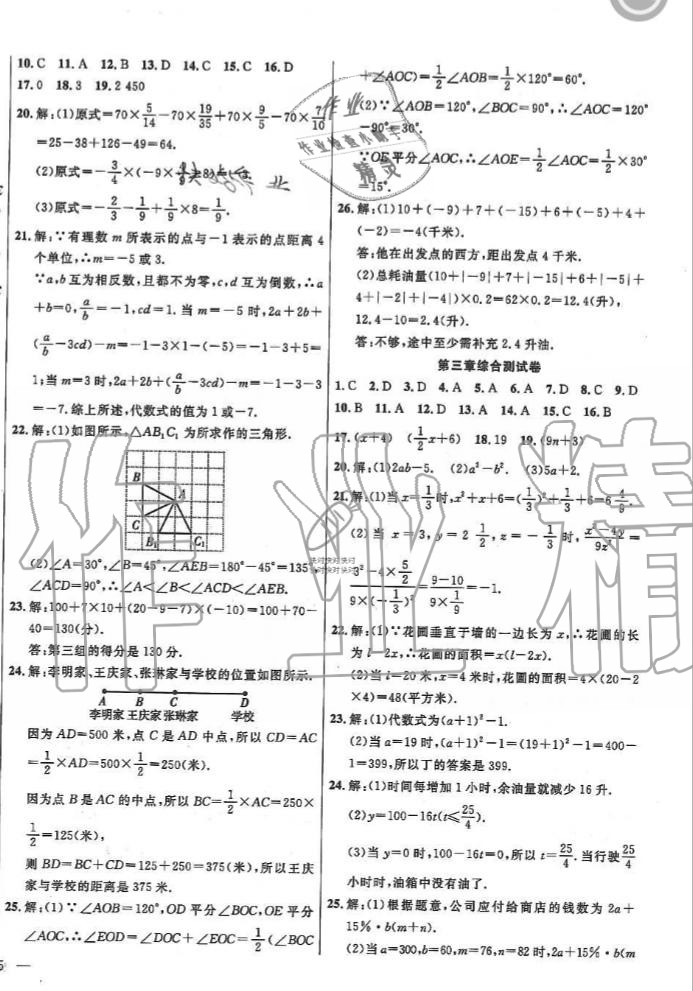 10.C 11.A 12.B 13.D 14.C 15.C 16.D
17.0 18.3 19.2 450
20.解:(1)原式=70×5/14-70×19/35+70×9/5-70×7/10
=25-38+126-49=64.
(2)原式=-3/4×(-9×
(3)原式=-2/3-1/9+1/9×8=1/9.
21.解:∵有理数m所表示的点与-1表示的点距离4
个单位,∴m=-5或3.
∵a,b互为相反数,且都不为零,c,d互为倒数,∴a
+b=0,a/b=-1,cd=1.当m=-5时,2a+2b+
(a/b-3cd)-m=-1-3×1-(-5)=-1-3+5=
1;当m=3时,2a+2b+(a/b-3cd)-m=-1-3-3
=-7.综上所述,代数式的值为1或-7.
22.解:(1)如图所示,△AB₁C₁为所求作的三角形.
B
A
C
B₁ C₁
(2)∠A=30°,∠B=45°,∠AEB=180°-45°=135°,
∠ACD=90°,∴∠A<∠B<∠ACD<∠AEB.
23.解:100+7×10+(20-9-7)×(-10)=100+70-
40=130(分).
答:第三组的得分是130分.
24.解:李明家、王庆家、张琳家与学校的位置如图所示.
A B C D
李明家 王庆家 张琳家 学校
因为AD=500米,点C是AD中点,所以CD=AC
=1/2×AD=500×1/2=250(米).
因为点B是AC的中点,所以BC=1/2×AC=250×
1/2=125(米),
则BD=BC+CD=125+250=375(米),所以王庆
家与学校的距离是375米.
25.解:(1)∵∠AOB=120°,OD平分∠BOC,OE平分
∠AOC,∴∠EOD=∠DOC+∠EOC=1/2(∠BOC
+∠AOC)=1/2∠AOB=1/2×120°=60°.
(2)∵∠AOB=120°,∠BOC=90°,∴∠AOC=120°
-90°=30°.
∵OE平分∠AOC,∴∠AOE=1/2∠AOC=1/2×30°
=15°.
26.解:(1)10+(-9)+7+(-15)+6+(-5)+4+
(-2)=-4(千米).
答:他在出发点的西方,距出发点4千米.
(2)总耗油量(10+|-9|+7+|-15|+6+|-5|+
4+|-2|+|-4|)×0.2=62×0.2=12.4(升),
12.4-10=2.4(升).
答:不够,途中至少需补充2.4升油.
第三章综合测试卷
1.C 2.D 3.D 4.A 5.A 6.A 7.D 8.C 9.D
10.B 11.A 12.D 13.C 14.A 15.C 16.B
17.(x+4) (1/2x+6) 18.19 19.(9n+3)
20.解:(1)2ab-5. (2)a²-b². (3)5a+2.
21.解:(1)当x=1/3时,x²+x+6=(1/3)²+1/3+6=6 4/9.
(2)当x=3,y=2 1/2,z=-1/3时,x²-4y/9z²=
3²-4×5/2/9×(-1/3)²=9-10/9×1/9=-1.
22.解:(1)∵花圃垂直于墙的一边长为x,∴花圃的长
为l-2x,∴花圃的面积=x(l-2x).
(2)当l=20米,x=4米时,花圃的面积=4×(20-2
×4)=48(平方米).
23.解:(1)代数式为(a+1)²-1.
(2)当a=19时,(a+1)²-1=(19+1)²-1=400-
1=399,所以丁的答案是399.
24.解:(1)时间每增加1小时,余油量就减少16升.
(2)y=100-16t(t≤25/4).
(3)当y=0时,100-16t=0,所以t=25/4.当行驶25/4
小时时,油箱中没有油了.
25.解:(1)根据题意,公司应付给商店的钱数为2a+
15%·b(m+n).
(2)当a=300,b=60,m=76,n=82时,2a+15%·b(m
作业
作业检查小助手
精灵
快对快对快对
作业精